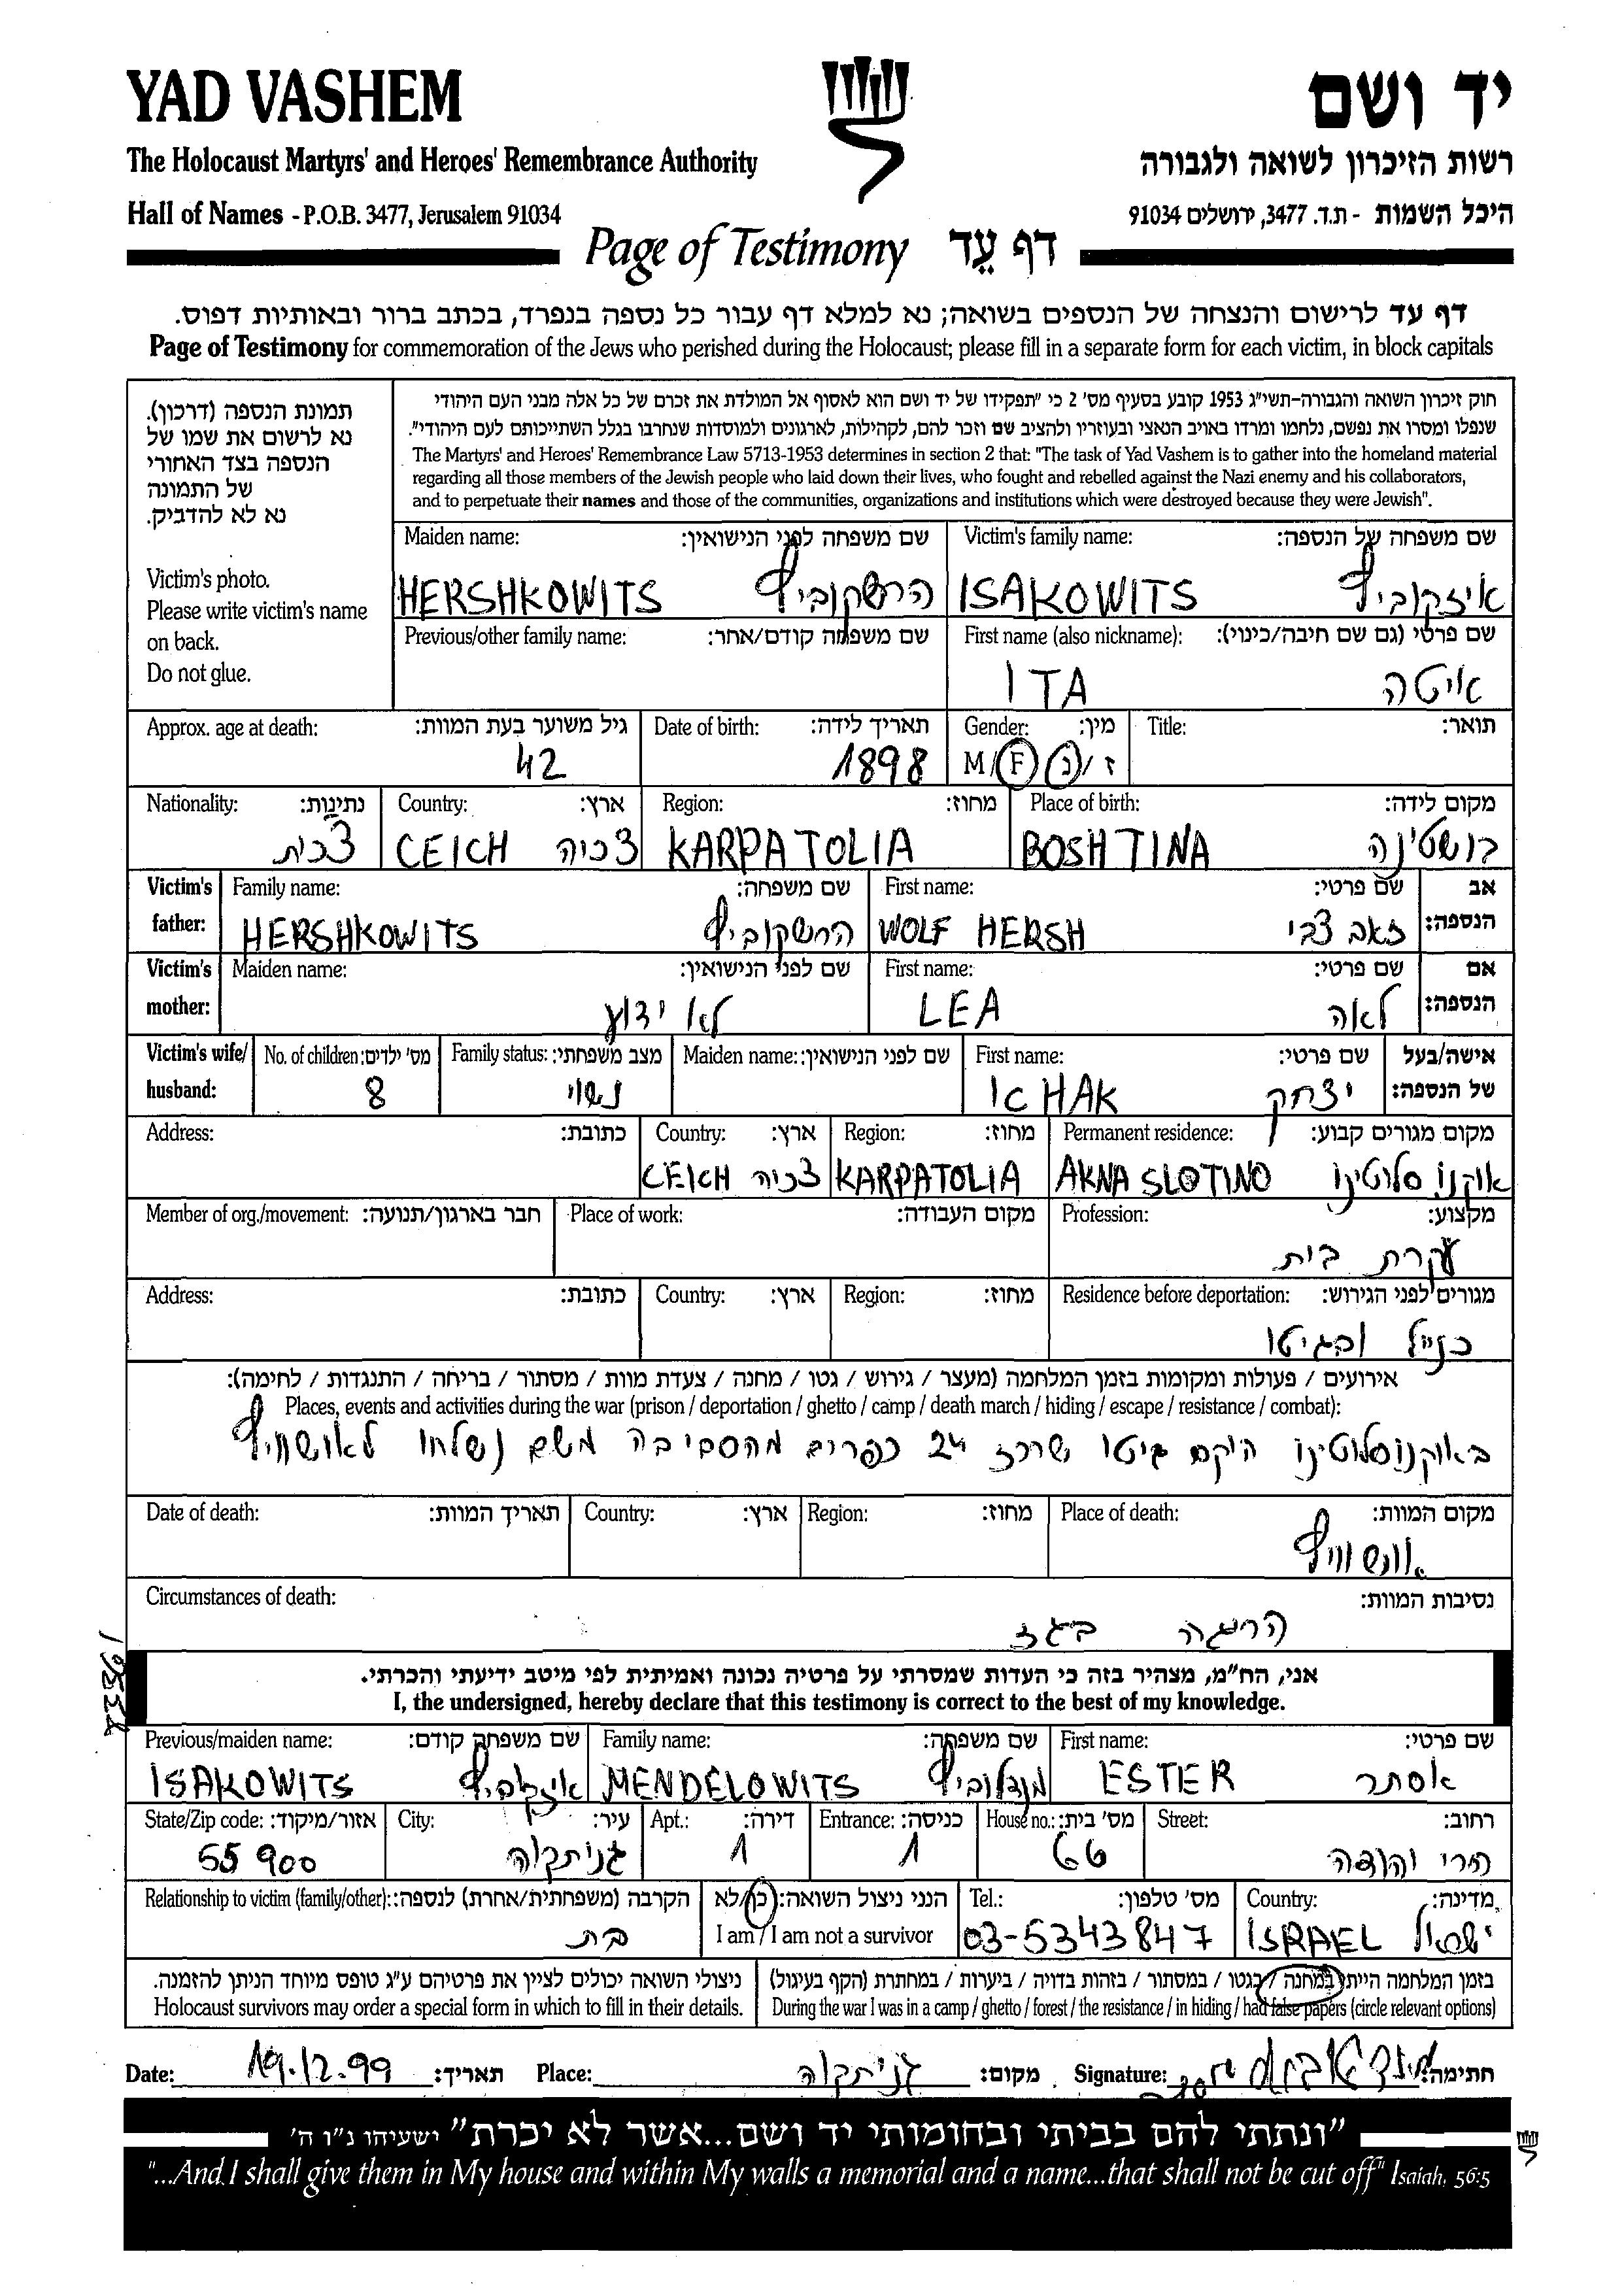 YAD VASHEM
יד ושם
The Holocaust Martyrs' and Heroes' Remembrance Authority
רשות הזיכרון לשואה ולגבורה
Hall of Names - P.O.B. 3477, Jerusalem 91034
היכל השמות - ת.ד. 3477, ירושלים 91034
Page of Testimony דף עֵד
דף עד לרישום והנצחה של הנספים בשואה; נא למלא דף עבור כל נספה בנפרד, בכתב ברור ובאותיות דפוס.
Page of Testimony for commemoration of the Jews who perished during the Holocaust; please fill in a separate form for each victim, in block capitals
תמונת הנספה (דרכון).
נא לרשום את שמו של
הנספה בצד האחורי
של התמונה
נא לא להדביק.
Victim's photo.
Please write victim's name
on back.
Do not glue.
חוק זיכרון השואה והגבורה-תשי"ג 1953 קובע בסעיף מס' 2 כי "תפקידו של יד ושם הוא לאסוף אל המולדת את זכרם של כל אלה מבני העם היהודי
שנפלו ומסרו את נפשם, נלחמו ומרדו באויב הנאצי ובעוזריו ולהציב שם וזכר להם, לקהילות, לארגונים ולמוסדות שנחרבו בגלל השתייכותם לעם היהודי".
The Martyrs' and Heroes' Remembrance Law 5713-1953 determines in section 2 that: "The task of Yad Vashem is to gather into the homeland material
regarding all those members of the Jewish people who laid down their lives, who fought and rebelled against the Nazi enemy and his collaborators,
and to perpetuate their names and those of the communities, organizations and institutions which were destroyed because they were Jewish".
Maiden name: שם משפחה לפני הנישואין:
HERSHKOWITS הרשקוביץ
Victim's family name: שם משפחה של הנספה:
ISAKOWITS איזקוביץ
Previous/other family name: שם משפחה קודם/אחר:
First name (also nickname): שם פרטי (גם שם חיבה/כינוי):
ITA איטה
Approx. age at death: גיל משוער בעת המוות:
42
Date of birth: תאריך לידה:
1898
Gender: מין:
M/F ז/נ
Title: תואר:
Nationality: נתינות:
צ'כית
Country: ארץ:
CEICH צכיה
Region: מחוז:
KARPATOLIA
Place of birth: מקום לידה:
BOSHTINA בושטינה
Victim's father: אב הנספה:
Family name: שם משפחה:
HERSHKOWITS הרשקוביץ
First name: שם פרטי:
WOLF HERSH זאב צבי
Victim's mother: אם הנספה:
Maiden name: שם לפני הנישואין:
לא ידוע
First name: שם פרטי:
LEA לאה
Victim's wife/ husband: אישה/בעל של הנספה:
No. of children: מס' ילדים:
8
Family status: מצב משפחתי:
נשוי
Maiden name: שם לפני הנישואין:
First name: שם פרטי:
ICHAK יצחק
Address: כתובת:
Country: ארץ:
CEICH צכיה
Region: מחוז:
KARPATOLIA
Permanent residence: מקום מגורים קבוע:
AKNA SLOTINO אוקנו סלוטינו
Member of org./movement: חבר בארגון/תנועה:
Place of work: מקום העבודה:
Profession: מקצוע:
עקרת בית
Address: כתובת:
Country: ארץ:
Region: מחוז:
Residence before deportation: מגורים לפני הגירוש:
כנ"ל ובגיטו
אירועים / פעולות ומקומות בזמן המלחמה (מעצר / גירוש / גטו / מחנה / צעדת מוות / מסתור / בריחה / התנגדות / לחימה):
Places, events and activities during the war (prison / deportation / ghetto / camp / death march / hiding / escape / resistance / combat):
באוקנוסלוטינו הוקם גיטו שרכז 24 כפרים מהסביבה משם נשלחו לאושוויץ
Date of death: תאריך המוות:
Country: ארץ:
Region: מחוז:
Place of death: מקום המוות:
אושוויץ
Circumstances of death: נסיבות המוות:
הרוגה בגז
אני, הח"מ, מצהיר בזה כי העדות שמסרתי על פרטיה נכונה ואמיתית לפי מיטב ידיעתי והכרתי.
I, the undersigned, hereby declare that this testimony is correct to the best of my knowledge.
Previous/maiden name: שם משפחה קודם:
ISAKOWITS איזקוביץ
Family name: שם משפחה:
MENDELOWITS מנדלוביץ
First name: שם פרטי:
ESTER אסתר
State/Zip code: אזור/מיקוד:
55900
City: עיר:
גני תקוה
Apt.: דירה:
1
Entrance: כניסה:
1
House no.: מס' בית:
66
Street: רחוב:
הרי יהודה
Relationship to victim (family/other): הקרבה (משפחתית/אחרת) לנספה:
בת
הנני ניצול השואה: כן/לא
I am / I am not a survivor
Tel.: מס' טלפון:
03-5343847
Country: מדינה:
ISRAEL ישראל
ניצולי השואה יכולים לציין את פרטיהם ע"ג טופס מיוחד הניתן להזמנה.
Holocaust survivors may order a special form in which to fill in their details.
בזמן המלחמה הייתי במחנה / בגטו / במסתור / בזהות בדויה / ביערות / במחתרת (הקף בעיגול)
During the war I was in a camp / ghetto / forest / the resistance / in hiding / had false papers (circle relevant options)
Date: 19.12.99 תאריך: Place: גני תקוה מקום: Signature: חתימה:
"ונתתי להם בביתי ובחומותי יד ושם...אשר לא יכרת" ישעיהו נ"ו ה'
"...And I shall give them in My house and within My walls a memorial and a name...that shall not be cut off" Isaiah, 56:5